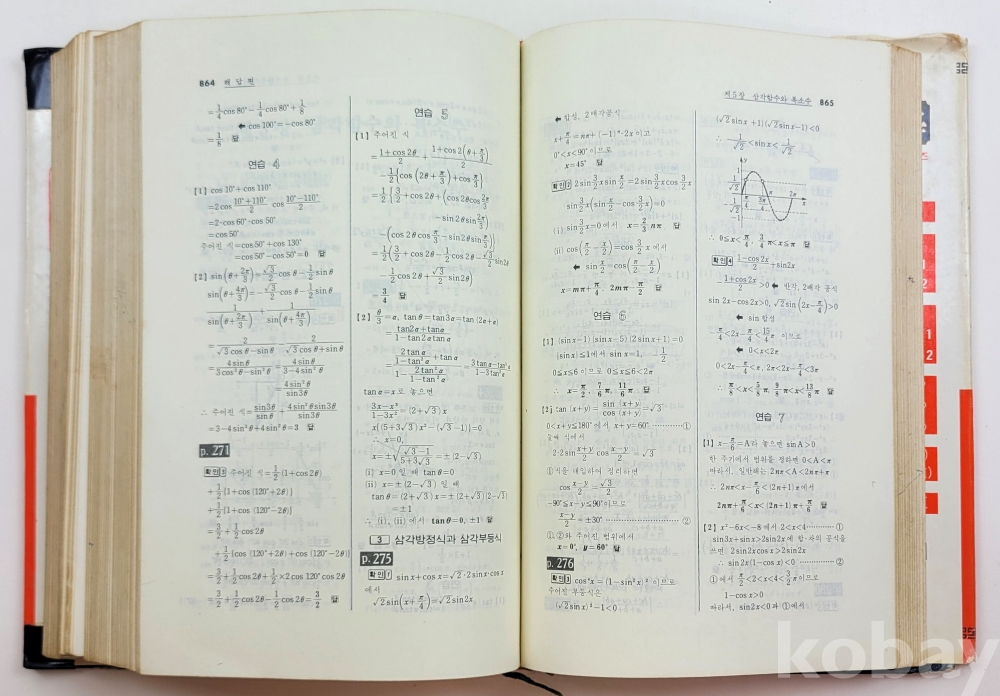 864 해 답 편
=1/4 cos 80°-1/4 cos 80°+1/8
← cos 100°=-cos 80°
=1/8 답
연습 4
[1] cos 10°+cos 110°
=2cos (10°+110°)/2 cos (10°-110°)/2
=2·cos 60°·cos 50°
=cos 50°
주어진 식=cos 50°+cos 130°
=cos 50°-cos 50°=0 답
[2] sin(θ+2π/3)=√3/2 cos θ-1/2 sin θ
sin(θ+4π/3)=-√3/2 cos θ-1/2 sin θ
1/sin(θ+2π/3)+1/sin(θ+4π/3)
=2/(√3 cos θ-sin θ)-2/(√3 cos θ+sin θ)
=4sin θ/(3cos²θ-sin²θ)=4sin θ/(3-4sin²θ)
=4sin²θ/sin3θ
∴ 주어진 식=sin3θ/sin θ+4sin²θ sin3θ/sin3θ
=3-4sin²θ+4sin²θ=3 답
p. 271
확인 3 주어진 식=1/2(1+cos 2θ)
+1/2{1+cos (120°+2θ)}
+1/2{1+cos (120°-2θ)}
=3/2+1/2 cos 2θ
+1/2{cos (120°+2θ)+cos (120°-2θ)}
=3/2+1/2 cos 2θ+1/2×2cos 120°cos 2θ
=3/2+1/2 cos 2θ-1/2 cos 2θ=3/2 답
연습 5
[1] 주어진 식
=(1+cos 2θ)/2+(1+cos 2(θ+π/3))/2
-1/2{cos(2θ+π/3)+cos π/3}
=1/2{3/2+cos 2θ+(cos 2θ cos 2π/3
-sin 2θ sin 2π/3)
-(cos 2θ cos π/3-sin 2θ sin π/3)}
=1/2(3/2+cos 2θ-1/2 cos 2θ-√3/2 sin 2θ
-1/2 cos 2θ+√3/2 sin 2θ)
=3/4 답
[2] θ/3=α, tan θ=tan 3α=tan (2α+α)
=(tan2α+tan α)/(1-tan2α tan α)
=(2tan α/(1-tan²α)+tan α)/(1-2tan²α/(1-tan²α))=(3tan α-tan³α)/(1-3tan²α)
tan α=x로 놓으면
(3x-x³)/(1-3x²)=(2+√3)x
x{(5+3√3)x²-(√3-1)}=0
∴ x=0,
x=±√((√3-1)/(5+3√3))=±(2-√3)
(i) x=0일 때 tan θ=0
(ii) x=±(2-√3)일 때
tan θ=(2+√3)x=±(2+√3)(2-√3)
=±1
∴ (i), (ii)에서 tan θ=0, ±1 답
3 삼각방정식과 삼각부등식
p. 275
확인 1 sin x+cos x=√2·2sin x·cos x
에서
√2 sin(x+π/4)=√2 sin 2x,
제 5 장 삼각함수와 복소수 865
← 합성, 2배각공식
x+π/4=nπ+(-1)ⁿ·2x 이고
0°<x<90°이므로
x=45° 답
확인 2 2sin 3/2 x sin x/2=2sin 3/2 x cos 3/2 x
sin 3/2 x(sin x/2-cos 3/2 x)=0
(i) sin 3/2 x=0에서 x=2/3 nπ 답
(ii) cos(π/2-x/2)=cos 3/2 x 에서
← sin x/2=cos(π/2-x/2)
x=mπ+π/4, 2mπ-π/2 답
연습 6
[1] (sin x-1)(sin x-5)(2sin x+1)=0
|sin x|≤1에서 sin x=1, -1/2
0≤x≤6 이므로 0≤x≤6<2π
∴ x=π/2, 7/6 π, 11/6 π 답
[2] tan (x+y)=sin (x+y)/cos (x+y)=√3
0<x+y≤180°에서 x+y=60° ①
둘째 식에서
2·2sin (x+y)/2 cos (x-y)/2=√3
①식을 대입하여 정리하면
cos (x-y)/2=√3/2
-90°≤x-y≤90°이므로
(x-y)/2=±30° ②
①, ②와 주어진 범위에서
x=0°, y=60° 답
p. 276
확인 3 cos⁴x=(1-sin²x)² 이므로
주어진 부등식은
(√2 sin x)²-1<0
(√2 sin x+1)(√2 sin x-1)<0
∴ -1/√2<sin x<1/√2
y
1
1/√2
π/4 3π/4 π 2π x
-1/√2
-1
∴ 0≤x<π/4, 3/4 π<x≤π 답
확인 4 (1-cos 2x)/2+sin 2x
-(1+cos 2x)/2>0 ← 반각, 2배각 공식
sin 2x-cos 2x>0, √2 sin(2x-π/4)>0
← sin 합성
-π/4<2x-π/4<15/4 π 이므로
← 0<x<2π
0<2x-π/4<π, 2π<2x-π/4<3π
∴ π/8<x<5/8 π, 9/8 π<x<13/8 π 답
연습 7
[1] x-π/6=A라 놓으면 sin A>0
한 주기에서 범위를 정하면 0<A<π
따라서, 일반해는 2nπ<A<2nπ+π
∴ 2nπ<x-π/6<(2n+1)π에서
2nπ+π/6<x<(2n+1)π+π/6 답
[2] x²-6x<-8에서 2<x<4 ①
sin3x+sin x>2sin2x에 합·차의 공식을
쓰면 2sin2x cos x>2sin2x
∴ sin2x(1-cos x)<0 ②
①에서 π/2<2<x<4<3/2 π이므로
1-cos x>0
따라서, sin2x<0과 ①에서
kobay